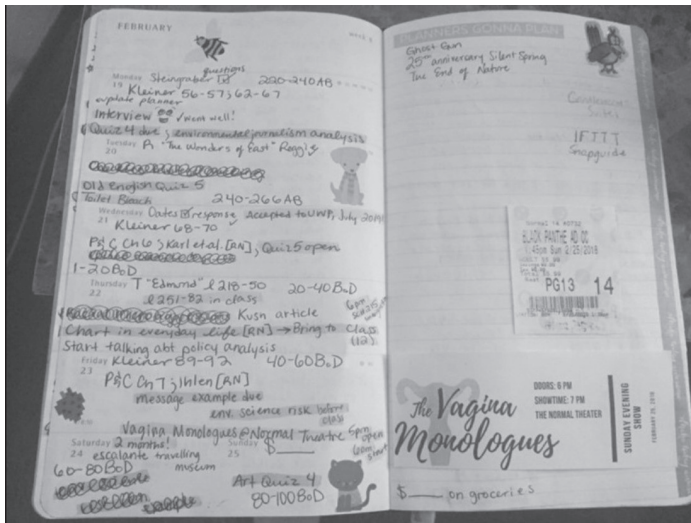 FEBRUARY
week 8
Monday
19
Steingraber
questions
220-240AB
Kleiner 56-57; 62-67
update planner
Interview
went well!
Quiz 4 due; environmental journalism analysis
Tuesday
20
R "The Wonders of Fast"
Old English Quiz 5
Toilet Bleach
240-266AB
Wednesday
21
Dates
response
Accepted to UWP, July 2019!
Kleiner 68-70
P&C Ch 6; Karl et al. [RN]; Quiz 5 open
1-20 BoD
Thursday
22
T "Edmund" l 218-50
20-40 BoD
l 251-82 in class
Kusn article
Chart in everyday life [RN] → Bring to class
(12)
Start talking abt policy analysis
Friday
23
Kleiner 89-92
40-60 BoD
P&C Ch 7; Ihlen [RN]
message example due
env. science risk before class
Vagina Monologues @ Normal Theatre 5pm open
6pm start
Saturday
24
2 months!
escalante travelling
museum
60-80 BoD
Sunday
25
$
Art Quiz 4
80-100 BoD
PLANNERS GONNA PLAN
Ghost Gun
25th anniversary Silent Spring
The End of Nature
IFTTT
Snapguide
BLACK PANTHE AD CC
1:45pm Sun 2/25/2018
PG13 14
The Vagina
Monologues
DOORS: 6 PM
SHOWTIME: 7 PM
THE NORMAL THEATER
SUNDAY EVENING
SHOW
$ on groceries